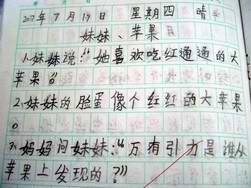 2012年7月19日 星期四 晴
妹妹、苹果
1.妹妹说:“她喜欢吃红通通的大
苹果。”
2.妹妹的脸蛋像个红红的大苹果
。
3.妈妈问妹妹:“万有引力是谁从
苹果上发现的?”